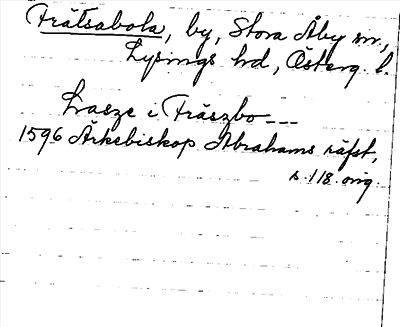 Trätsabola, by, Stora Åby sn,
Lysings hd, Österg. l.
Lasze i Träszbo---
1596 Ärkebiskop Abrahams räfst,
s. 118 orig.